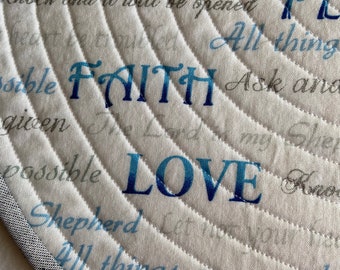 Knock and it will be opened
heart be troubled
All things
possible FAITH Ask and
given The Lord is my Shepherd
possible LOVE Knoc
Shepherd Let not you
All things